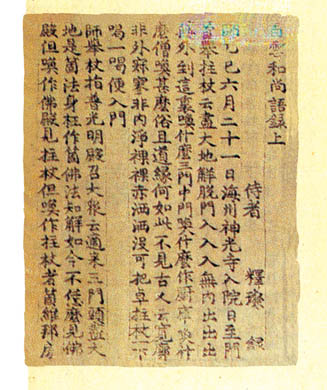 和尚語錄上
侍者 釋璨 録
巳六月二十一日海州神光寺入院日至門
拄杖云盡大地解脫門入入入無内出出出
外到這裏喚什麼三門中門喚什麼作廚庫喚什
麼僧喚甚麼俗且道緣何如此不見古人云寬廓
非外寂寥非内淨裸裸赤洒洒沒可把卓拄杖一下
喝一喝便入門
師舉杖指普光明殿召大衆云適来三門頭盡大
地是箇法身枉作箇佛法知解如今不恁麼見佛
殿但喚作佛殿見拄杖但喚作拄杖者箇維那房